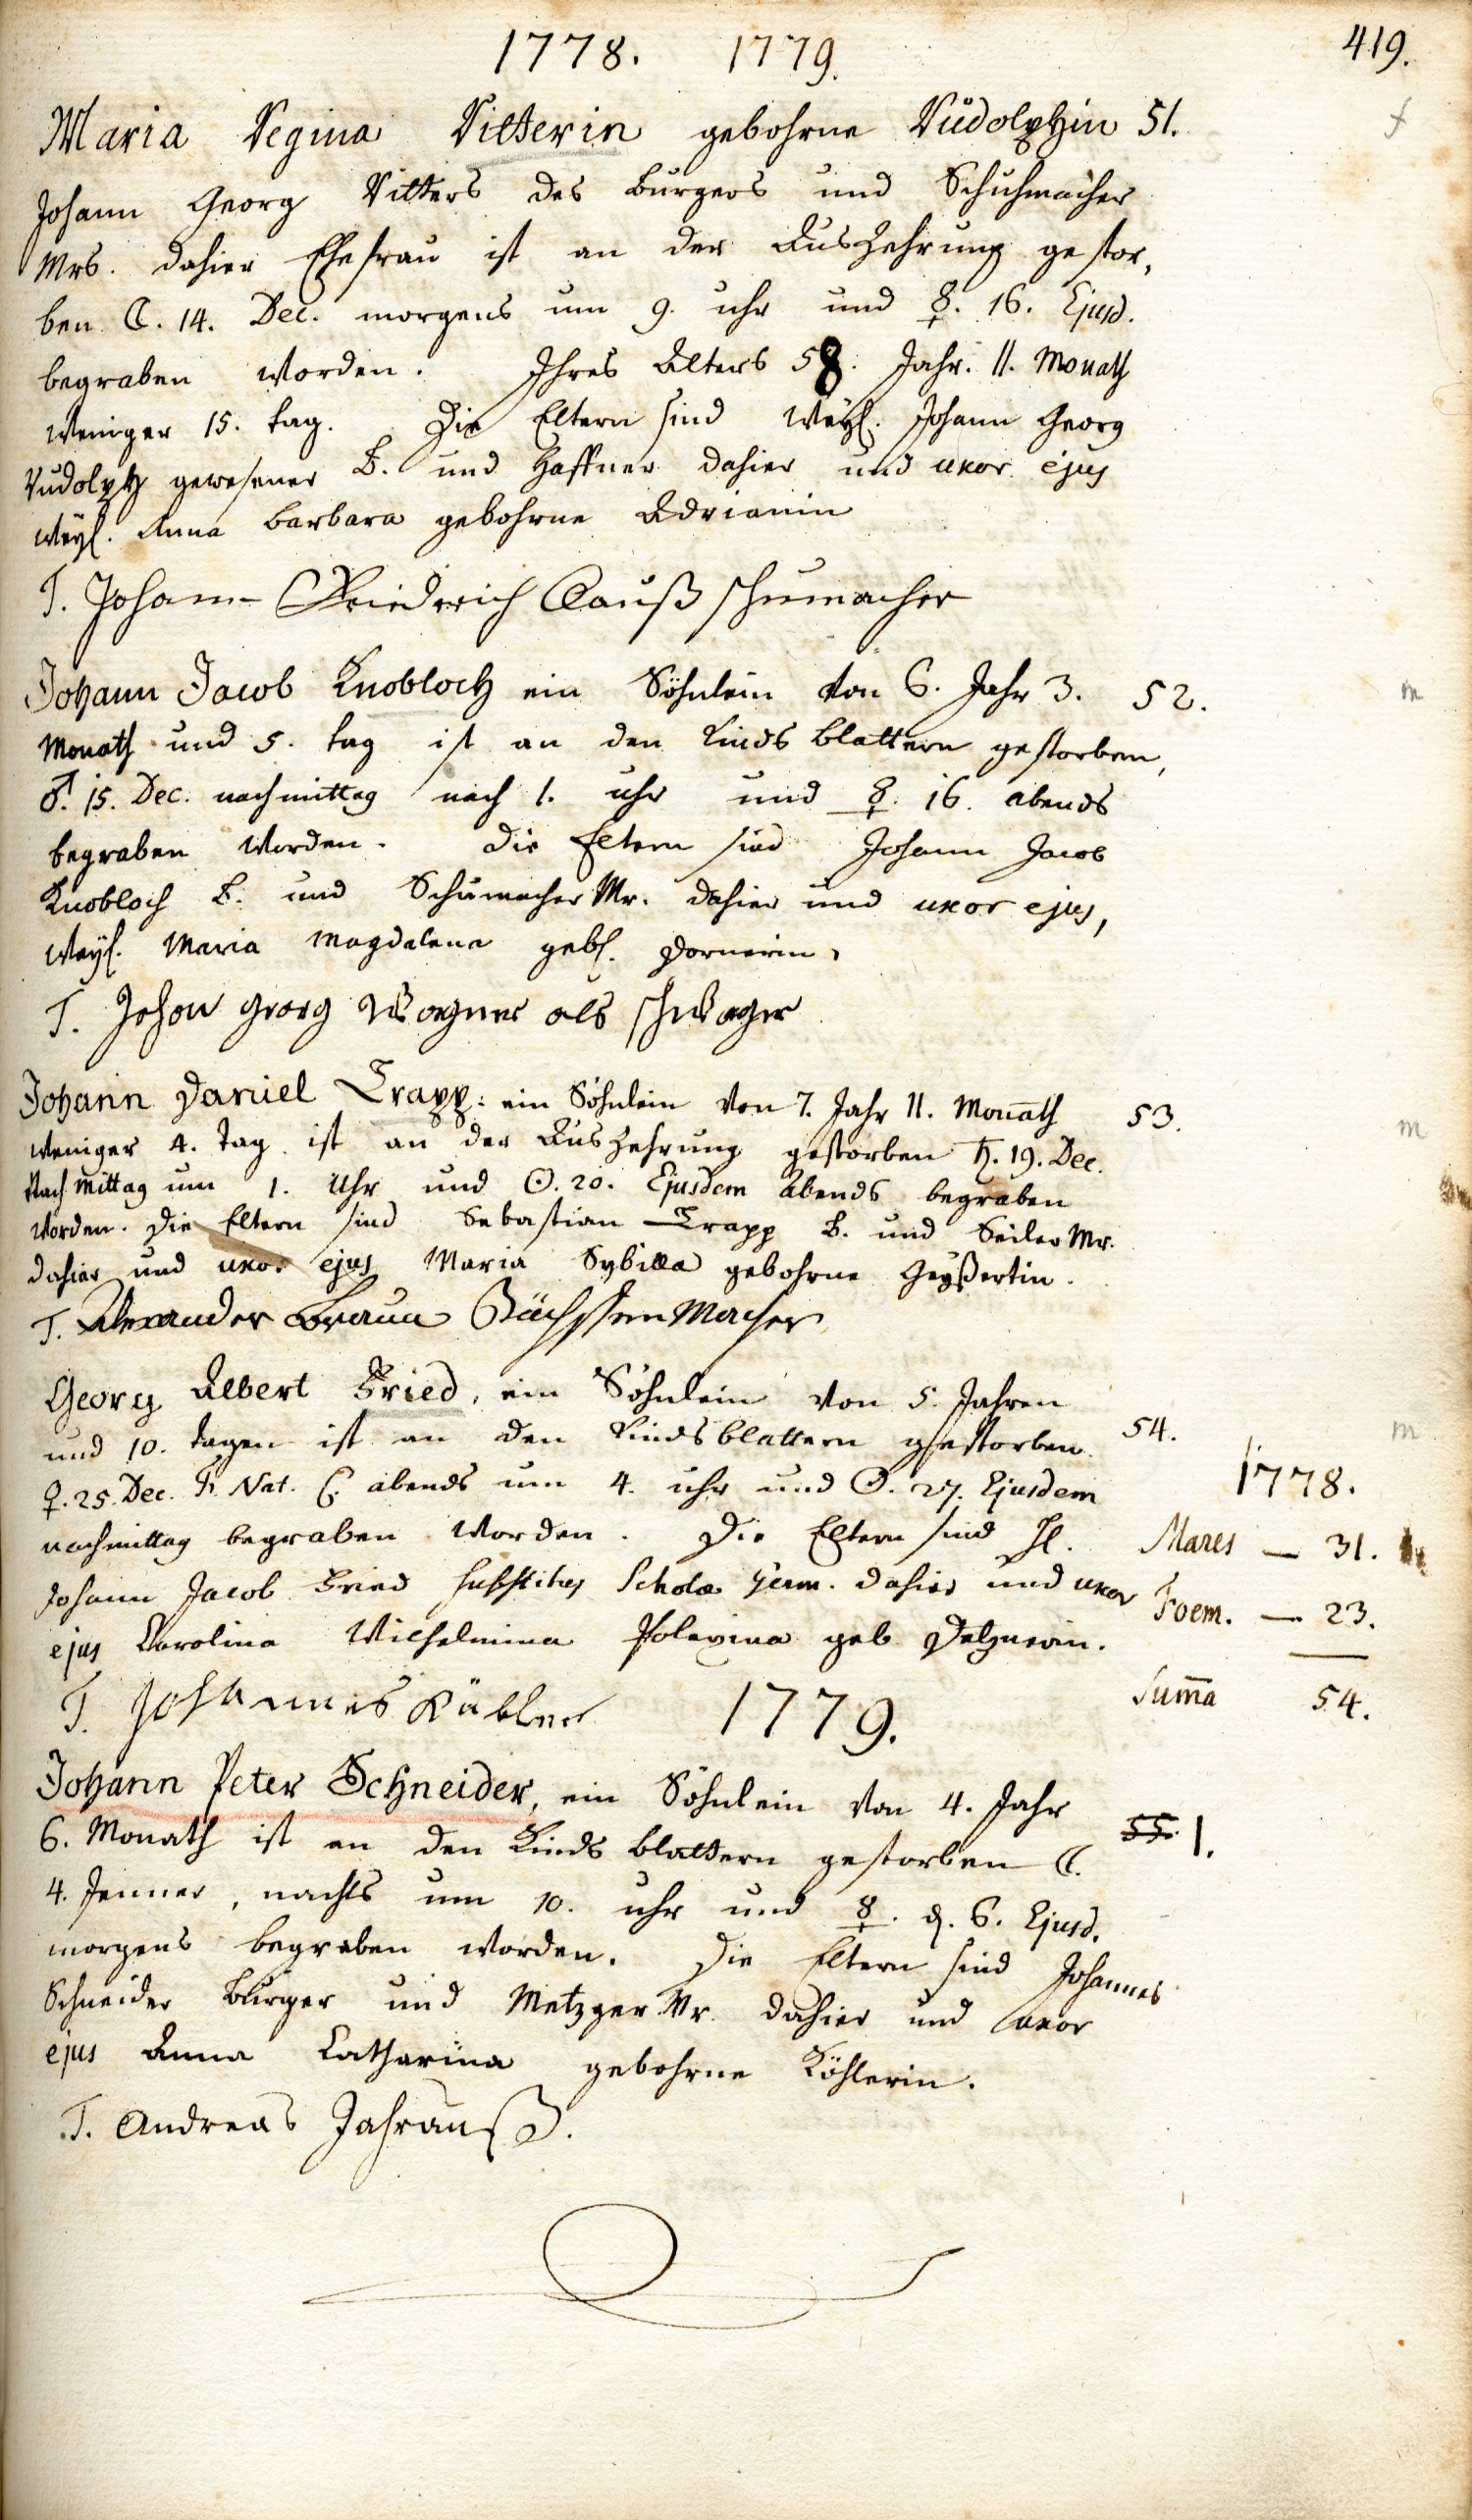 1778. 1779. 419.
Maria Regina Ritterin gebohrne Rudolphin 51. f
Johann Georg Ritters des Burgers und Schuhmacher
Mrs. dahier Ehefrau ist an der Auszehrung gestor,
ben ☾. 14. Dec. morgens um 9. uhr und ☿. 16. Ejusd.
begraben worden. Ihres Alters 58. Jahr. 11. Monath
weniger 15. tag. Die Eltern sind weyl. Johann Georg
Rudolph gewesener B. und Haffner dahier und uxor ejus
weyl. Anna Barbara gebohrne Adrianin
T. Johann Friedrich Clauß schumacher
Johann Jacob Knobloch ein Söhnlein von 6. Jahr 3. 52. m
Monath und 5. tag ist an den Kinds blattern gestorben,
♂. 15. Dec. nachmittag nach 1. uhr und ☿. 16. abends
begraben worden. Die Eltern sind Johann Jacob
Knobloch B. und Schumacher Mr. dahier und uxor ejus,
weyl. Maria Magdalena gebl. Dornerin,
T. Johan Georg Wagner als schwager
Johann Daniel Trapp: ein Söhnlein von 7. Jahr 11. Monath 53. m
weniger 4. Tag ist an der Auszehrung gestorben ♄. 19. Dec.
Nach Mittag um 1. Uhr und ☉. 20. Ejusdem Abends begraben
worden. Die Eltern sind Sebastian Trapp B. und Seiler Mr.
dahier und uxor ejus Maria Sybilla gebohrne Geyßertin.
T. Alexander Braun Büchssen Macher
Georg Albert Fried, ein Söhnlein von 5. Jahren
und 10. tagen ist an den Kindsblattern gestorben. 54. m
♀. 25. Dec. Nat. abends um 4. uhr und ☉. 27. Ejusdem 1778.
nachmittag begraben worden. Die Eltern sind H. Mares — 31.
Johann Jacob Fried substitus Schola Germ. dahier und uxor Foem. — 23.
ejus Carolina Wilhelmina geb. Summa 54.
T. Johannes Kübler 1779.
Johann Peter Schneider, ein Söhnlein von 4. Jahr
6. Monath ist an den Kinds blattern gestorben ☾. 55. 1.
4. Jenner, nachts um 10. uhr und ☿. d. 6. Ejusd.
morgens begraben worden. Die Eltern sind Johannes
Schneider Burger und Metzger Mr. dahier und uxor
ejus Anna Catharina gebohrne Köhlerin.
T. Andreas Jahrauß.